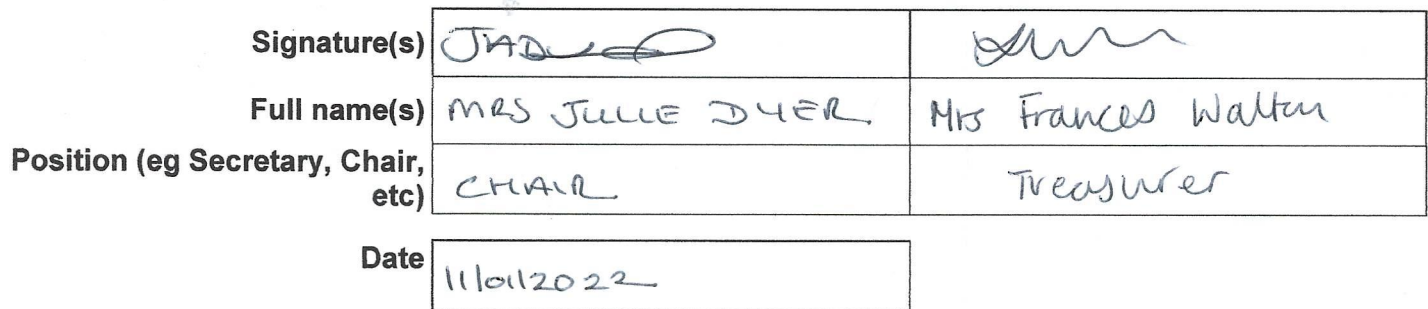 Signature(s) JAD
Full name(s) MRS JULIE DYER Mrs Frances Walton
Position (eg Secretary, Chair,
etc) CHAIR Treasurer
Date 11/01/2022